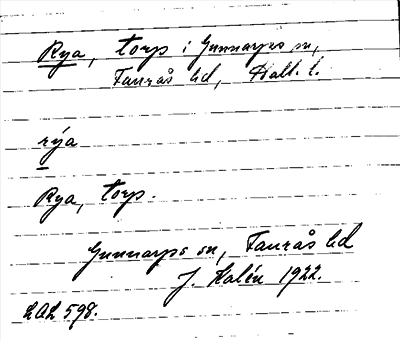 Rya, torp i Gunnarps sn,
Faurås hd, Hall. l.
rýa
Rya, torp.
Gunnarps sn, Faurås hd
J. Kalén 1922.
LAL 598.